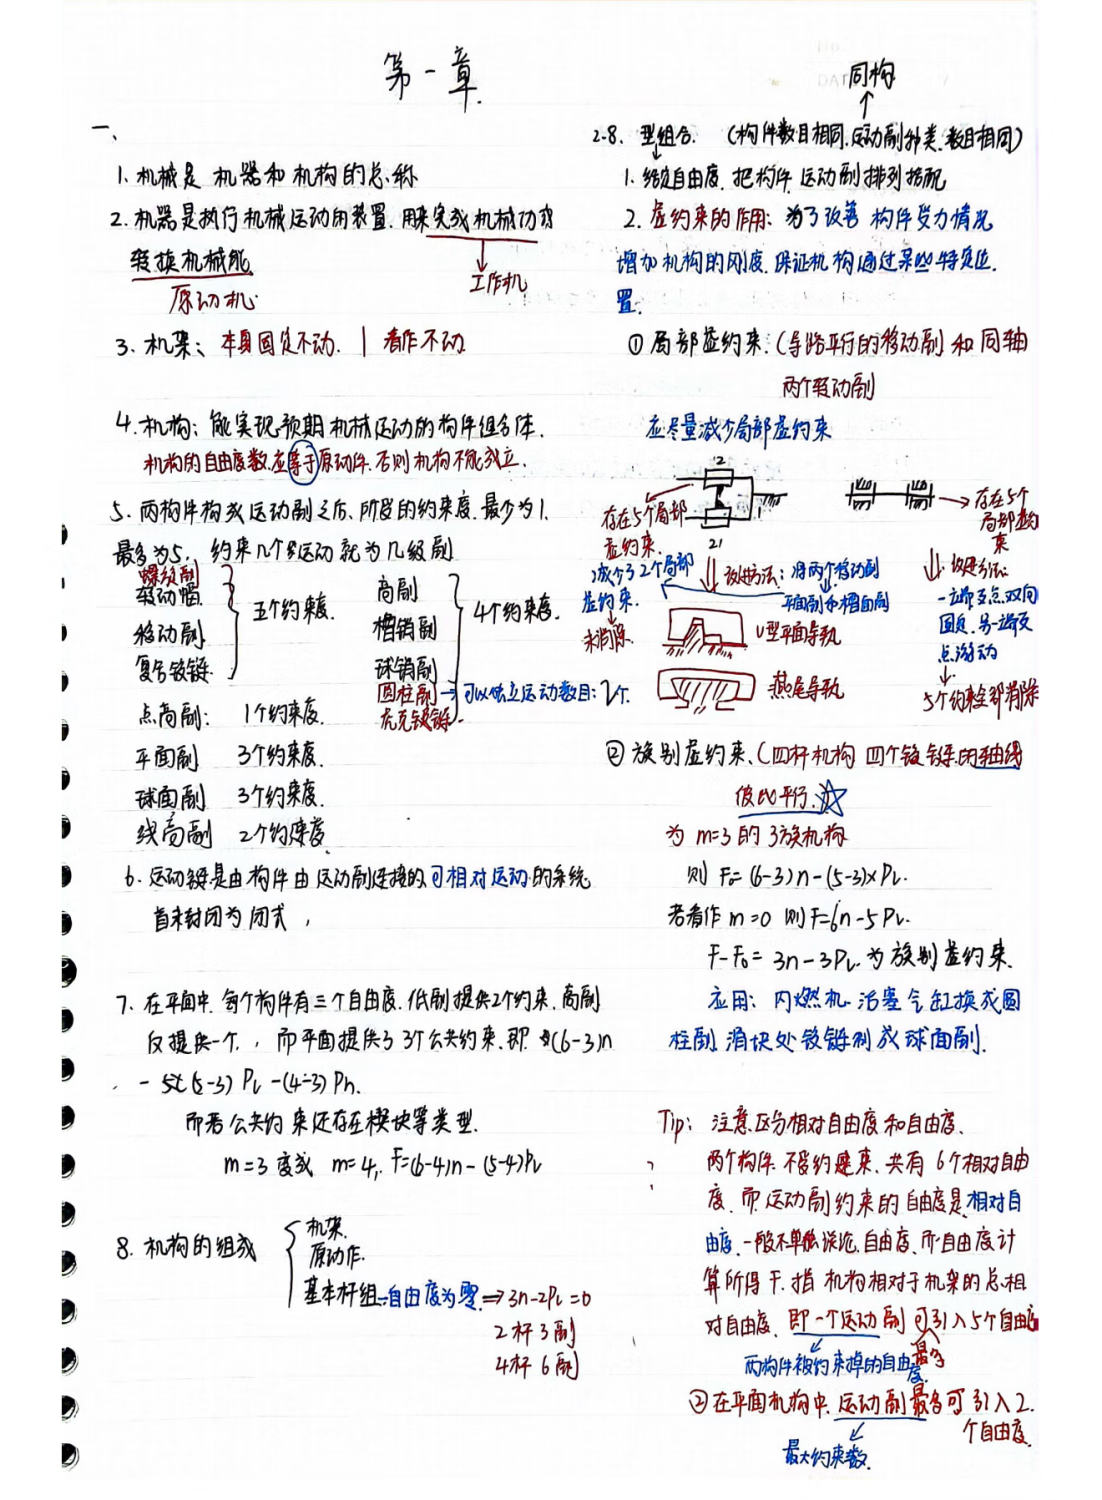 第一章
一、
1. 机械是 机器和机构的总称
2. 机器是执行机械运动的装置.用来完成机械功或
转换机械能
工作机
原动机
3. 机架: 本身固定不动. | 看作不动
4. 机构: 能实现预期机械运动的构件组合体.
机构的自由度数应等于原动件.否则机构不能成立.
5. 两构件构成运动副之后、所受的约束度.最少为1.
最多为5. 约束几个运动就为几级副
螺纹副
转动副
移动副
复合铰链.
五个约束度.
高副
槽销副
球销副
圆柱副→可以独立运动数目: 2个.
4个约束度.
点高副: 1个约束度.
平面副 3个约束度.
球面副 3个约束度.
线高副 2个约束度
6. 运动链是由构件由运动副连接的可相对运动的系统
首末封闭为闭式,
7. 在平面中.每个构件有三个自由度.低副提供2个约束.高副
仅提供一个. , 而平面提供了3个公共约束.即 (6-3)n
- (5-3) PL -(4-3) Ph.
而若公共约束还存在楔块等类型.
m=3 变成 m=4, F=(6-4)n-(5-4)PL
8. 机构的组成
机架.
原动件.
基本杆组=自由度为零.⇒3n-2PL=0
2杆3副
4杆6副
同构
2-8. 型组合. (构件数目相同.运动副种类.数目相同)
1. 给定自由度.把构件.运动副排列搭配
2. 虚约束的作用: 为了改善构件受力情况
增加机构的刚度.保证机构通过某些特殊位.
置.
① 局部虚约束: (导路平行的移动副和同轴
两个转动副
应尽量减少局部虚约束
2
1
2'
存在5个局部
虚约束.
存在5个
局部虚约
束
减少了2个局部
虚约束.
未消除.
改进方法: 将两个移动副
平面副和槽面副
V型平面导轨
燕尾导轨
改进方法:
一端支点双向
固定.另一端支
点游动
5个约束全部消除
② 族别虚约束.(四杆机构 四个铰链的轴线
彼此平行.)☆
为 m=3 的 3族机构
则 F0=(6-3)n-(5-3)×PL.
若看作 m=0 则F=6n-5PL.
F-F0= 3n-3PL.为族别虚约束.
应用: 内燃机 活塞气缸换成圆
柱副.滑块处铰链制成球面副.
Tip: 注意区分相对自由度和自由度.
两个构件.不受约束.共有6个相对自由
度.而运动副约束的自由度是相对自
由度.一般不单独谈论自由度.而自由度计
算所得F.指机构相对于机架的总相
对自由度. 即一个运动副可引入5个自由度
最多
两构件被约束掉的自由度.
②在平面机构中.运动副最多可引入2.
个自由度.
最大约束数.